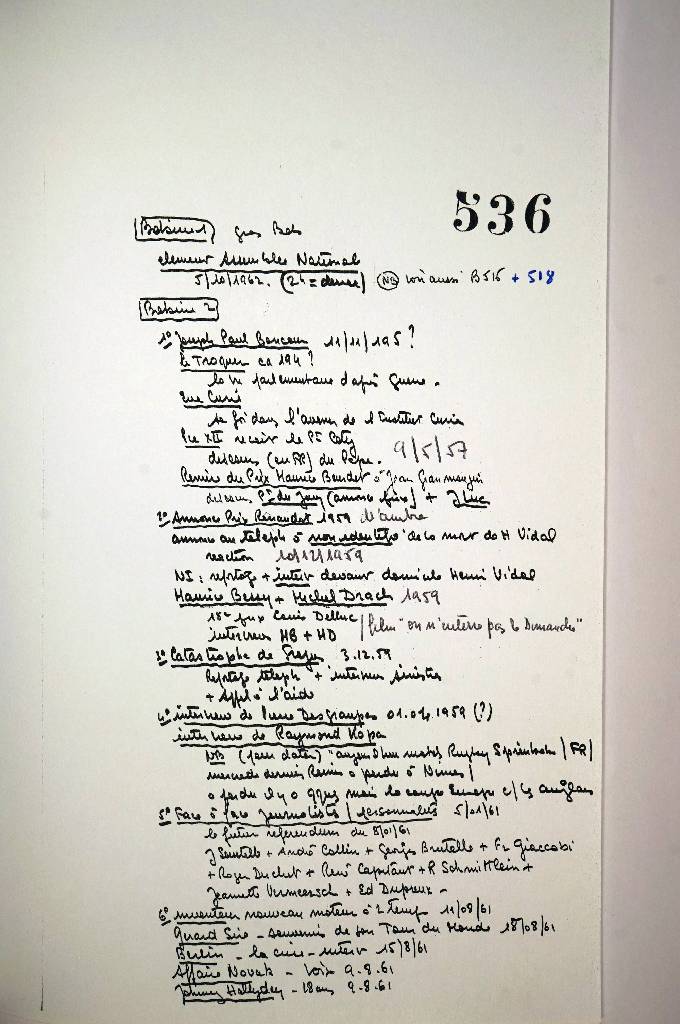 536
Bobine 1 gros Bob
clameur Assemblée National
5/10/1962. (24 = danse) NB voir aussi B515 + 518
Bobine 2
1° Joseph Paul Boncour 11/11/195?
Le Troquer ca 194?
la vie parlementaire d'après Guerre.
Eve Curie
sa foi dans l'avenir de l'Institut Curie
Pie XII reçoit le Pt Coty
discours (en FR) du Pape. 9/5/57
Remise du Prix Maurice Baudet à Jean
discours Pt du Jury + J Luc
2° Annonce Prix Renaudot 1959
annonce au téléph à non identifié de la mort de H Vidal
réaction 10/12/1959
NI : reportage + interv devant domicile Henri Vidal
Maurice Bessy + Michel Drach 1959
prix Louis Delluc
interview MB + MD / film "on n'enterre pas le Dimanche"
3° Catastrophe de Frejus 3.12.59
Reportage téleph + interview sinistrés
+ Appel à l'aide
4° interview de Pierre Desgraupes 01.04.1959 (?)
interview de Raymond Kopa
NB (pour dater) "aujourd'hui match Rugby / FR /
mercredi dernier Reims a perdu à Nimes /
a perdu il y a qques mois la coupe Europe c/ les
5° Face à face journalistes / personnalités 5/01/61
le futur referendum du 8/01/61
J Soustelle + André Collin + Georges Brutelle + Fr Giaccobi
+ Roger Duchet + René Capitant + R Schmittlein +
Jeannette Vermeersch + Ed Dupreux -
6° inventeur nouveau moteur à 2 temps 11/08/61
Gérard Sire - souvenirs de son Tour du Monde 18/08/61
Berlin - la crise - interv 15/8/61
Affaire Novak - Voix 9.8.61
Johnny Hallyday - 18 ans 9.8.61